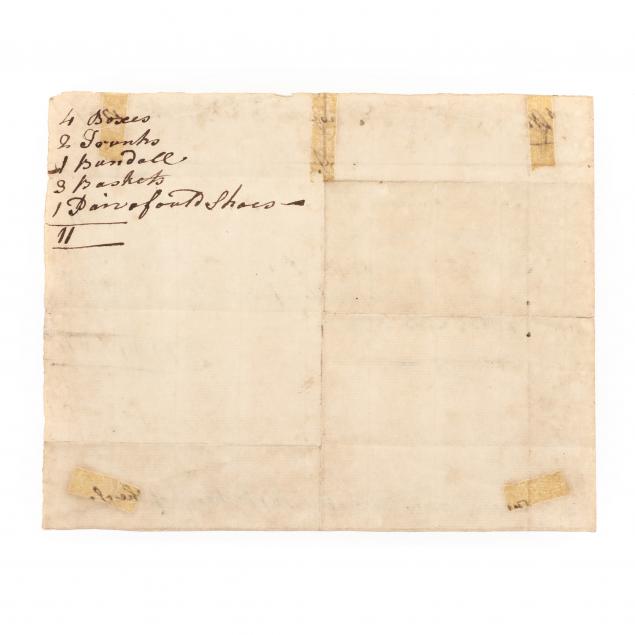 4 Boxes
2 Trunks
1 Bundell
3 Baskets
1 Pair of ould Shoes
11